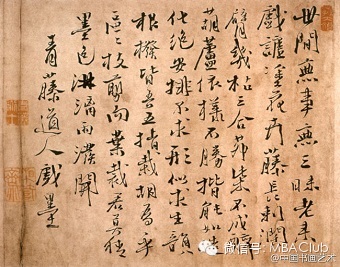 世間無事無三昧老来
戲謔塗花卉藤長刺闊
臂幾枯三合茅柴不成醉
葫蘆依樣不勝揩能如造
化絶安排不求形似求生韻
根撥皆吾五指栽胡為乎
區區枝剪而葉裁君莫猜
墨色淋漓雨撥開
青藤道人戲墨
微信号: MBAClub
@中国书画艺术